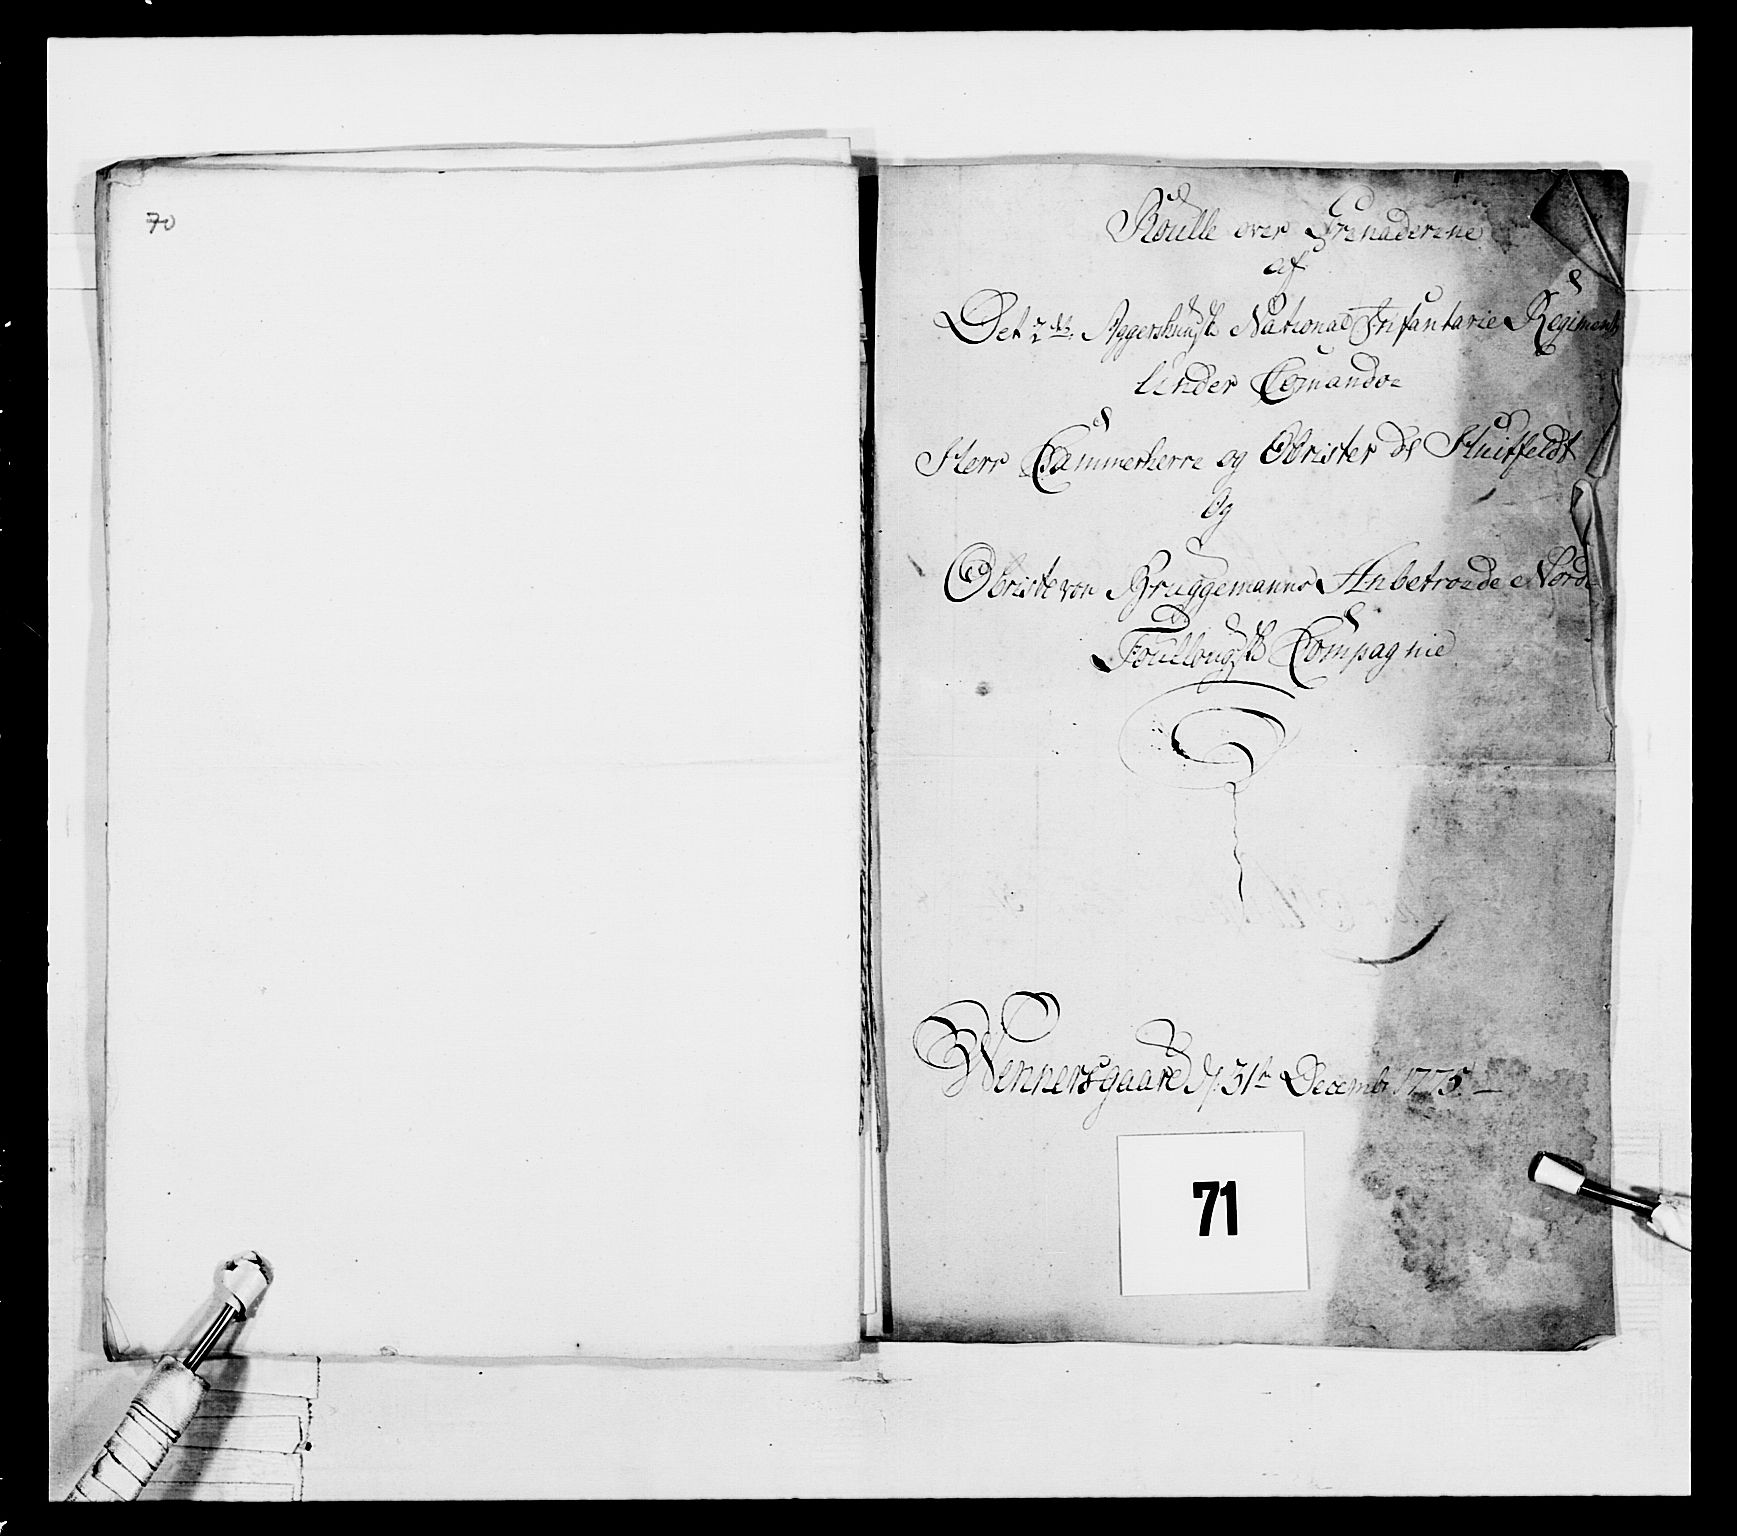 70
Roulle over Grenaderene
af
Det 2det Aggershuusk National Infanterie Regiment
Under Comando
Herr Cammerherre og Obrister de Huitfeldt
Og
Obriste von Bruggemanns Anbetroede Nord
Compagnie
Wennersgaard d: 31te Decembr 1775
71